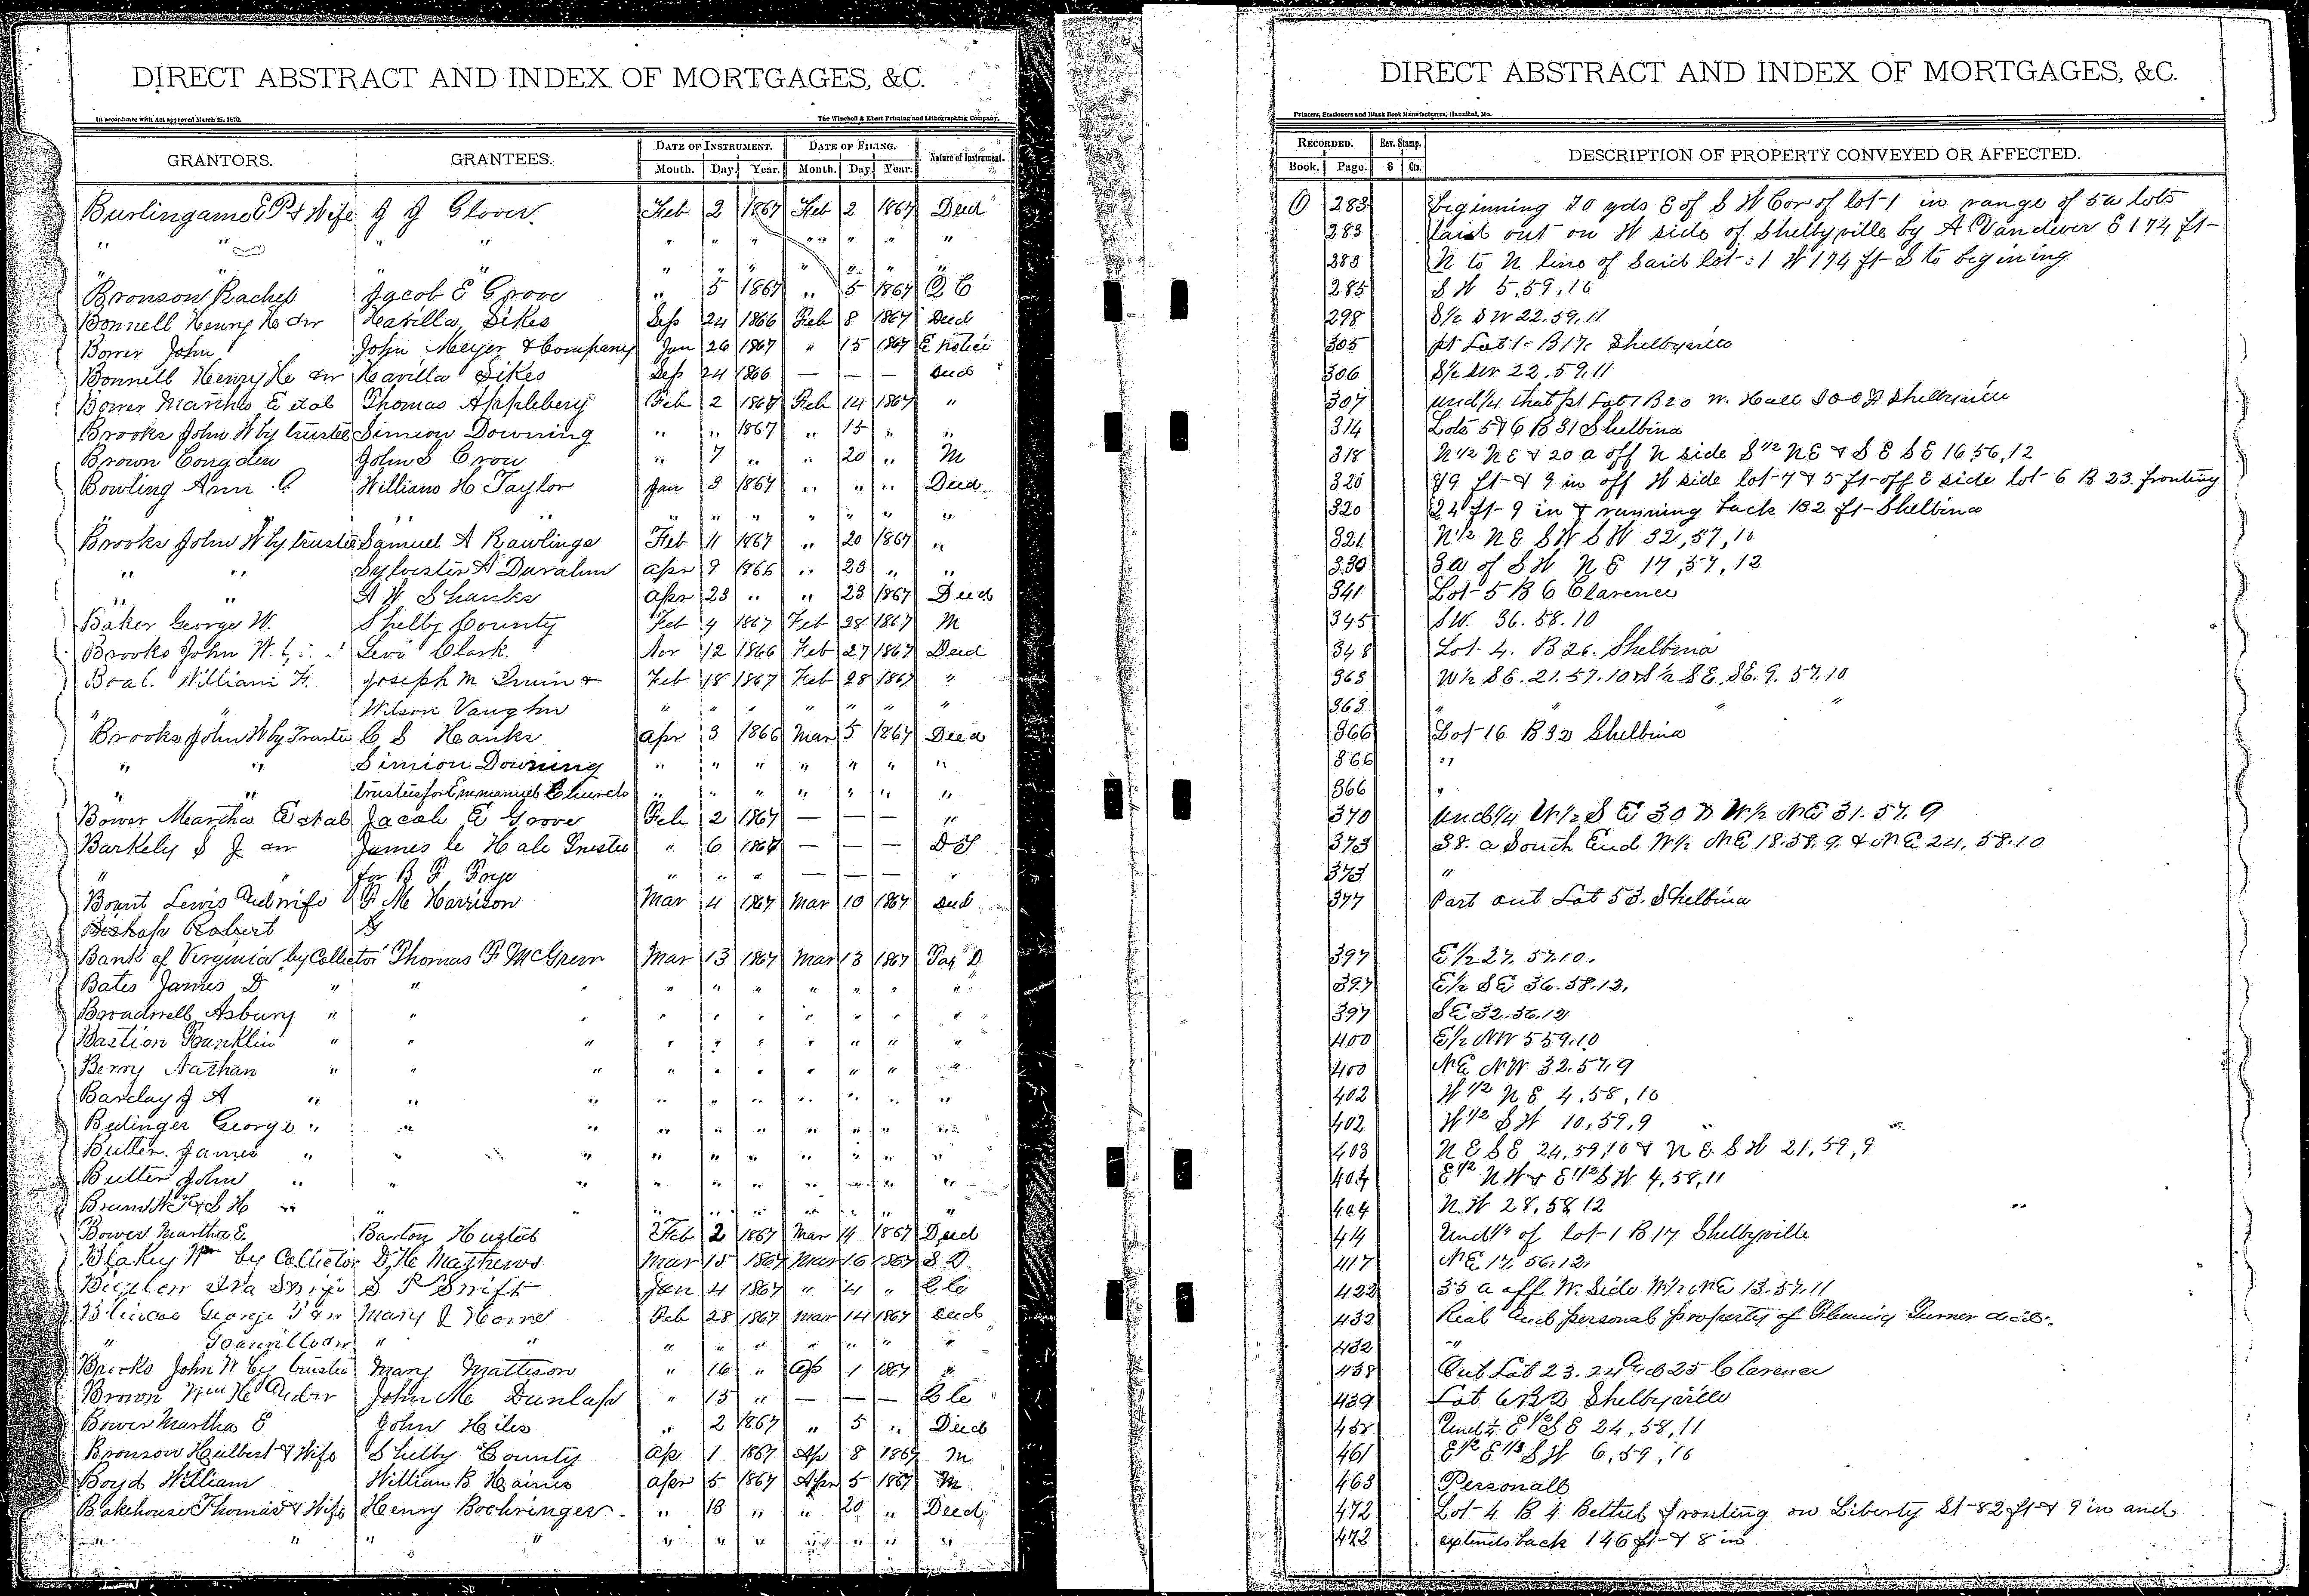 DIRECT ABSTRACT AND INDEX OF MORTGAGES, &C.
In accordance with Act approved March 25, 1870. The Winchell & Ebert Printing and Lithographing Company,
GRANTORS. GRANTEES. DATE OF INSTRUMENT. DATE OF FILING. Nature of Instrument.
Month. Day. Year. Month. Day. Year.
Burlingame E P & Wife J J Glover Feb 2 1867 Feb 2 1867 Deed
" " " " " " " " " " "
" " " " " " " " " " "
Bronson Rachel Jacob E Grove " 5 1867 " 5 1867 Q C
Bonnell Henry H Sep 24 1866 Feb 8 1867 Deed
John John Meyer & Company Jan 26 1867 " 15 1867 E Notice
Bonnell Henry H Sep 24 1866 — — — Deed
Bower Martha E et al Thomas Appleberg Feb 2 1867 Feb 14 1867 "
Brooks John W by trustee Simion Downing " " 1867 " 15 " "
Brown Congden John S Crow " 7 " " 20 " M
Bowling Ann William H Taylor Jan 3 1867 " " " Deed
" " " " " " " " " "
Brooks John W by trustee Samuel A Rawlings Feb 11 1867 " 20 1867 "
" " Sylvester A apr 9 1866 " 23 " "
" " A W Shanks apr 23 " " 23 1867 Deed
Baker George W. Shelby County Feb 4 1867 Feb 28 1867 M
Brooks John W. Levi Clark Nov 12 1866 Feb 27 1867 Deed
William H. Joseph M & Feb 18 1867 Feb 28 1867 "
" " Wilson Vaughn " " " " " " "
Brooks John W by Trustee C S Hanks apr 3 1866 Mar 5 1867 Deed
" " Simion Downing " " " " " " "
" " trustees for Emmanuel Church " " " " " " "
Bower Martha E et al Jacob E Grove Feb 2 1867 — — — "
Barkely S J James C Hale Trustee " 6 1867 — — — D T
" " for B F " " " — — — "
Lewis and wife F M Harrison Mar 4 1867 Mar 10 1867 Deed
Bishop Robert
Bank of Virginia by Collector Thomas F McGrew Mar 13 1867 Mar 13 1867 Tax D
Bates James D " " " " " " " " " "
Broadwell Asbury " " " " " " " " " "
Bastion Franklin " " " " " " " " " "
Berry Nathan " " " " " " " " " "
Barclay J A " " " " " " " " " "
Bedinger George " " " " " " " " " "
Butler James " " " " " " " " " "
Butler John " " " " " " " " " "
" " " " " " " " " "
Bower Martha E Barton Feb 2 1867 Mar 4 1867 Deed
Blakey Wm by Collector D H Mathews Mar 15 1867 Mar 16 1867 S D
Ira S P Swift Jan 4 1867 " 4 "
George Mary J Feb 28 1867 Mar 14 1867 Deed
" " " " " " " " " "
Brooks John W by trustee Mary Mattison " 16 " Ap 1 1867 "
Brown Wm H John M Dunlap " 15 " — — —
Bower Martha E John Hiles " 2 1867 " 5 " Deed
Bronson Hulbert & Wife Shelby County Ap 1 1867 Ap 8 1867 M
Boyd William William B Haines apr 5 1867 Apr 5 1867 M
Bakehouse Thomas & Wife Henry Bochringer " 18 " " 20 " Deed
" " " " " " " " " " "
DIRECT ABSTRACT AND INDEX OF MORTGAGES, &C.
Printers, Stationers and Blank Book Manufacturers, Hannibal, Mo.
RECORDED. Rev. Stamp. DESCRIPTION OF PROPERTY CONVEYED OR AFFECTED.
Book. Page. $ Cts.
O 283 beginning 70 yds E of S W Cor of lot 1 in range of 5a lots
283 laid out on W side of Shelbyville by A Vandiver E 174 ft
283 N to N line of said lot 1 W 174 ft S to begining
285 S W 5,59,10
298 S½ SW 22.59.11
305 pt Lot 1 B 17 Shelbyville
306 S½ SW 22.59.11
307 und ¼ that pt Lot 7 B 20 Shelbyville
314 Lots 5 & 6 B 31 Shelbina
318 N½ NE & 20 a off N side S½ NE & S E SE 16,56,12
320 19 ft & 9 in off W side lot 7 & 5 ft off E side lot 6 B 23. fronting
320 24 ft 9 in & running back 132 ft Shelbina
321 N½ NE SW SW 32,57,10
330 3a of SW NE 17,57,12
341 Lot 5 B 6 Clarence
345 SW. 36.58.10
348 Lot 4. B 26. Shelbina
363 W½ SE. 21.57.10 & S½ SE. SE. 9. 57.10
363 " " "
366 Lot 16 B 32 Shelbina
366 "
366 "
370 und ¼ W½ SE 30 & W½ NE 31.57.9
373 38. a South End W½ NE 18.58.9. & NE 24. 58.10
373 "
377 Part out Lot 53. Shelbina
397 E½ 27. 57.10.
397 E½ SE 36.58.12.
397 SE 32.56.12
400 E½ NW 5 59.10
400 NE NW 32.57.9
402 W½ NE 4,58,10
402 W½ SW 10,59,9
403 NE SE 24,59,10 & NE SW 21,59,9
404 E½ NW & E½ SW 4,58,11
404 N.W 28,58 12
414 Und ¼ of lot 1 B 17 Shelbyville
417 NE 17.56.12.
422 35 a off W. Side W½ NE 13.57.11
432 Real and personal property of Fleming Turner
432 "
438 Out Lot 23.24 and 25 Clarence
439 Lot 6 B 2 Shelbyville
458 Und ¼ E½ SE 24,58,11
461 E½ E½ SW 6,59,10
463 Personall
472 Lot 4 B 4 Bethel fronting on Liberty St 82 ft & 9 in and
472 extends back 146 ft & 8 in